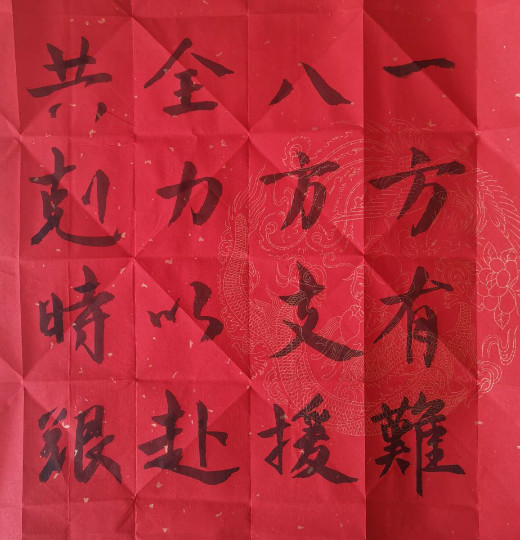 一方有難
八方支援
全力以赴
共剋時艱